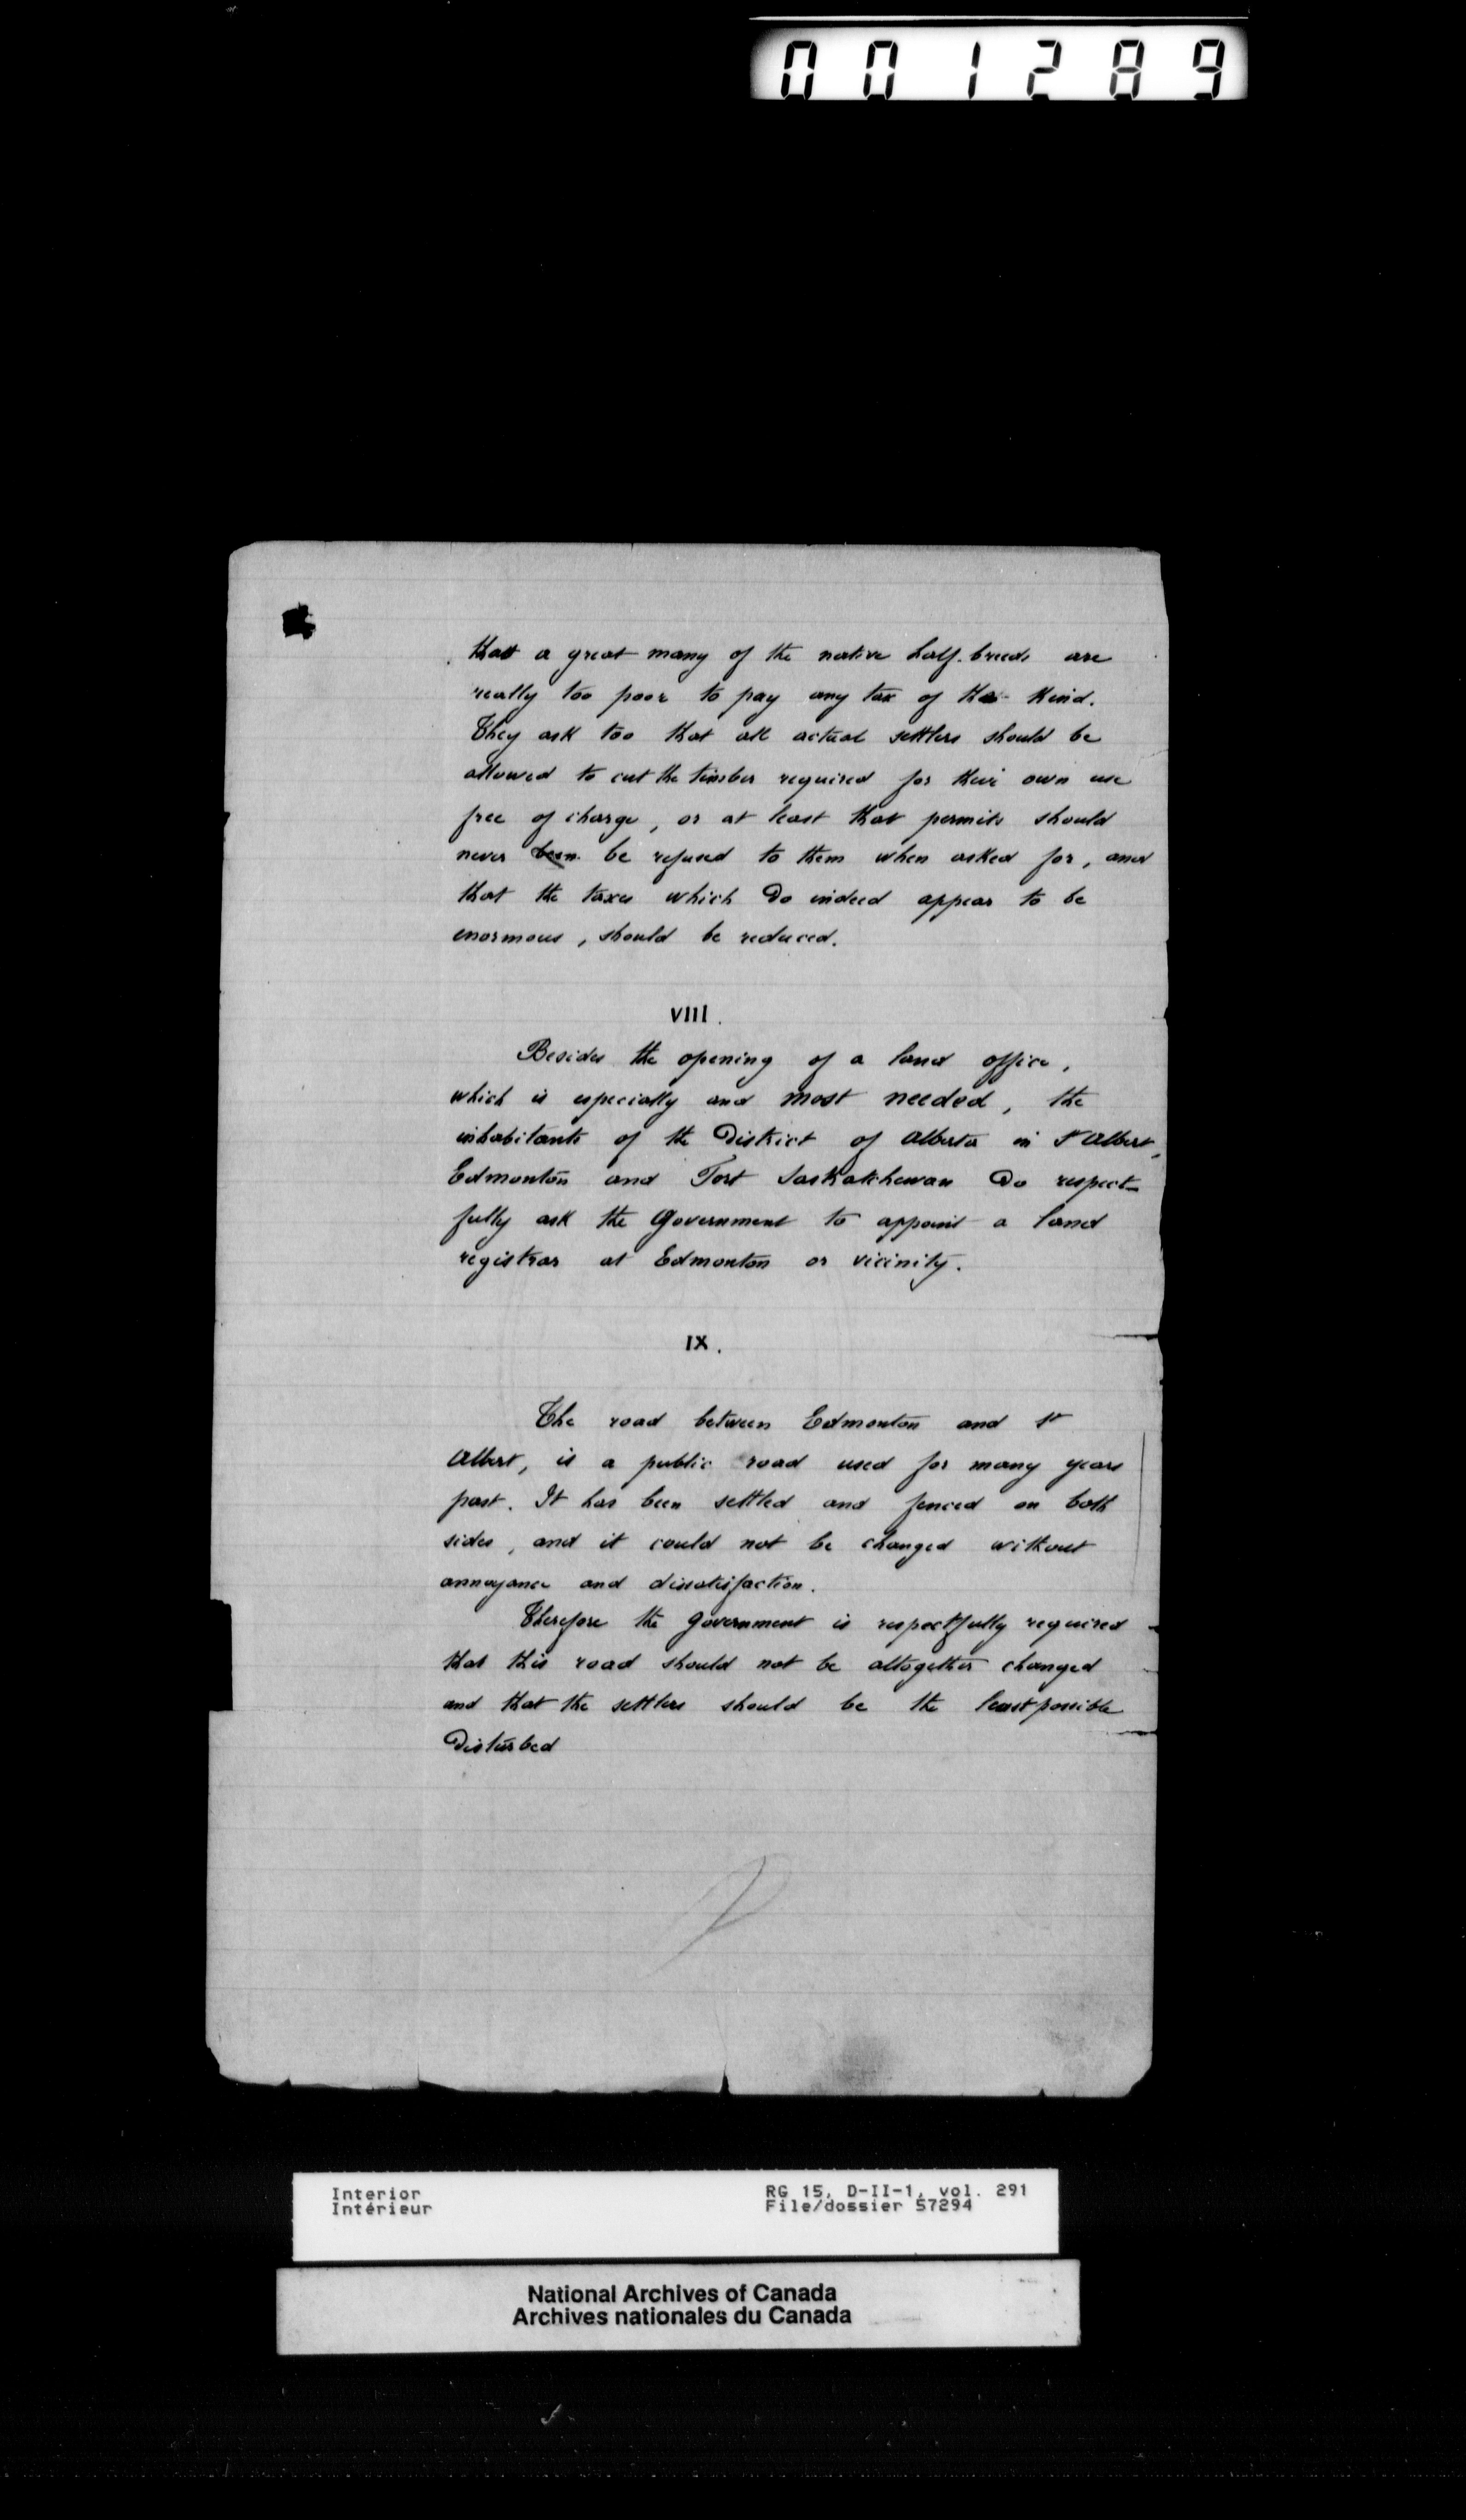 001289
that a great many of the native half-breeds are
really too poor to pay any tax of the kind.
They ask too that all actual settlers should be
allowed to cut the timber required for their own use
free of charge, or at least that permits should
never been be refused to them when asked for, and
that the taxes which do indeed appear to be
enormous, should be reduced.
VIII.
Besides the opening of a land office,
which is especially and most needed, the
inhabitants of the District of Alberta in St Albert,
Edmonton and Fort Saskatchewan do respect-
fully ask the Government to appoint a land
registrar at Edmonton or vicinity.
IX.
The road between Edmonton and St
Albert, is a public road used for many years
past. It has been settled and fenced on both
sides, and it could not be changed without
annoyance and dissatisfaction.
Therefore the Government is respectfully required
that this road should not be altogether changed
and that the settlers should be the least possible
Disturbed
Interior
Intérieur
RG 15, D-II-1, vol. 291
File/dossier 57294
National Archives of Canada
Archives nationales du Canada